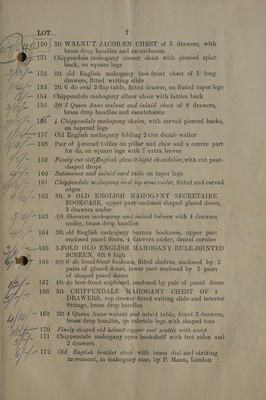 LOT 7
150 3ft WALNUT JACOBEAN CHEST of 5 drawers, with
brass drop handles and escutcheons
151 Chippendale mahogany corner chair with pierced splat
back, on square legs
152 3ft old English mahogany bow-front chest of 5 long
drawers, fitted writing slide
153 2ft 6 do oval 2-flap table, fitted drawer, on fluted taper legs
154 Chippendale mahogany elbow chair with lattice back
155 3ft 3 Queen Anne walnut and inlaid chest of 9 drawers,
brass drop handles and escutcheons
156 4 Chippendale mahogany chairs, with carved pierced backs,
on tapered legs
157 Old English mahogany folding 2-tier dumb waiter
158 Pair of ½-round tables on pillar and claw and a centre part
for do, on square legs with 7 extra leaves
159 Finely cut old English glass 9-light chandelier, with cut pear-
shaped drops
160 Satinwood and inlaid card table on taper legs
161 Chippendale mahogany oval top wine cooler, fluted and carved
edges
162 3ft 9 OLD ENGLISH MAHOGANY SECRETAIRE
BOOKCASE, upper part enclosed shaped glazed doors,
3 drawers under
163 5ft Sheraton mahogany and inlaid bureau with 4 drawers
under, brass drop handles
164 3ft old English mahogany bureau bookcase, upper part
enclosed panel doors, 4 drawers under, dentel cornice
165 5-FOLD OLD ENGLISH MAHOGANY RULE-JOINTED
SCREEN, 6ft 6 high
166 6ft 6 do breakfront bookcase, fitted shelves, enclosed by 2
pairs of glazed doors, lower part enclosed by 2 pairs
of shaped panel doors
167 4ft do bow-front cupboard, enclosed by pair of panel doors
168 3ft CHIPPENDALE MAHOGANY CHEST OF 4
DRAWERS, top drawer fitted writing slide and interior
fittings, brass drop handles
169 2ft 4 Queen Anne walnut and inlaid table, fitted 3 drawers,
brass drop handles, on cabriole legs with shaped toes
170 Finely shaped old helmet copper coal scuttle with scoop
171 Chippendale mahogany open bookshelf with fret sides and
2 drawers
172 Old English bracket clock with brass dial and striking
movement, in mahogany case, by P. Mason, London